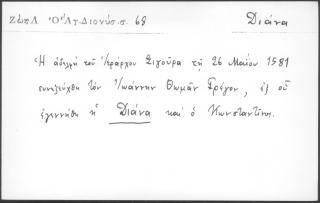 Ζώης Λ Ὁ Ἅγ. Διονύσ. σ. 68 Διάνα
Ἡ ἀδελφὴ τοῦ Ἱεράρχου Σιγούρα τῇ 26 Μαίου 1581
συνεζεύχθη τὸν Ἰωάννην Θωμᾶν Γρέγον, ἐξ οὗ
ἐγεννήθη ἡ Διάνα καὶ ὁ Κωνσταντῖνος.